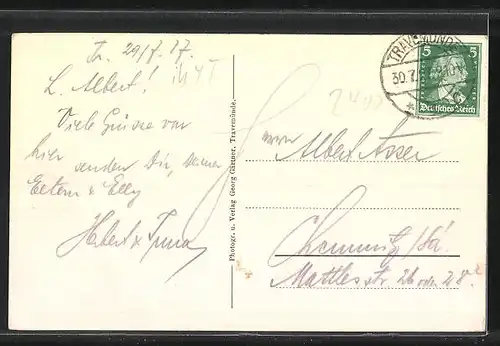 Tr. 29/7.27.
L. Albert!
Viele Grüsse von
hier senden Dir, Deinen
Eltern & Elly
Herbert &
Photogr. u. Verlag Georg Gärtner, Travemünde.
TRAVEMÜNDE
30.7.
5 5
Deutsches Reich
Herrn
Albert
Chemnitz/Sa.
Mattlesstr. 26 oder 28.